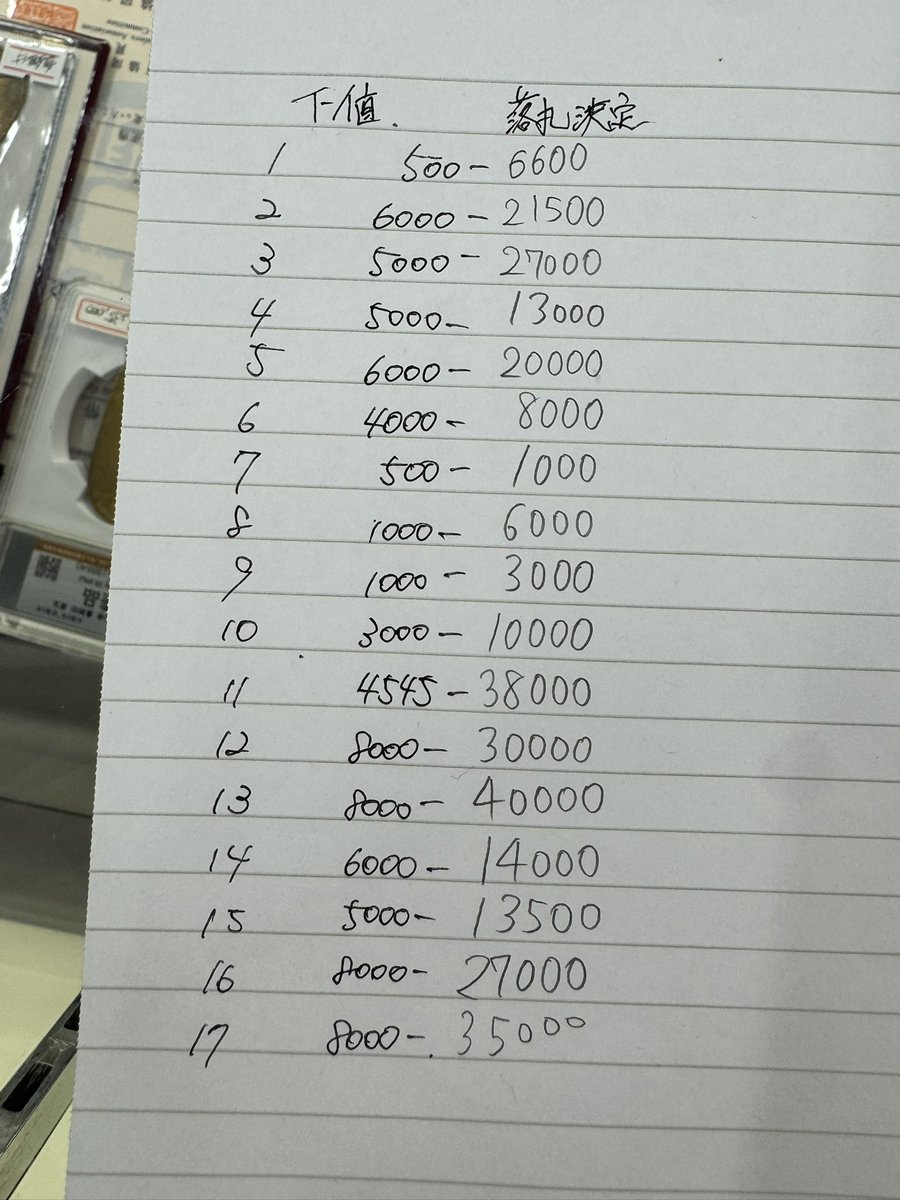 下値. 落札決定
1 500- 6600
2 6000- 21500
3 5000- 27000
4 5000- 13000
5 6000- 20000
6 4000- 8000
7 500- 1000
8 1000- 6000
9 1000- 3000
10 3000- 10000
11 4545- 38000
12 8000- 30000
13 8000- 40000
14 6000- 14000
15 5000- 13500
16 8000- 27000
17 8000-. 35000